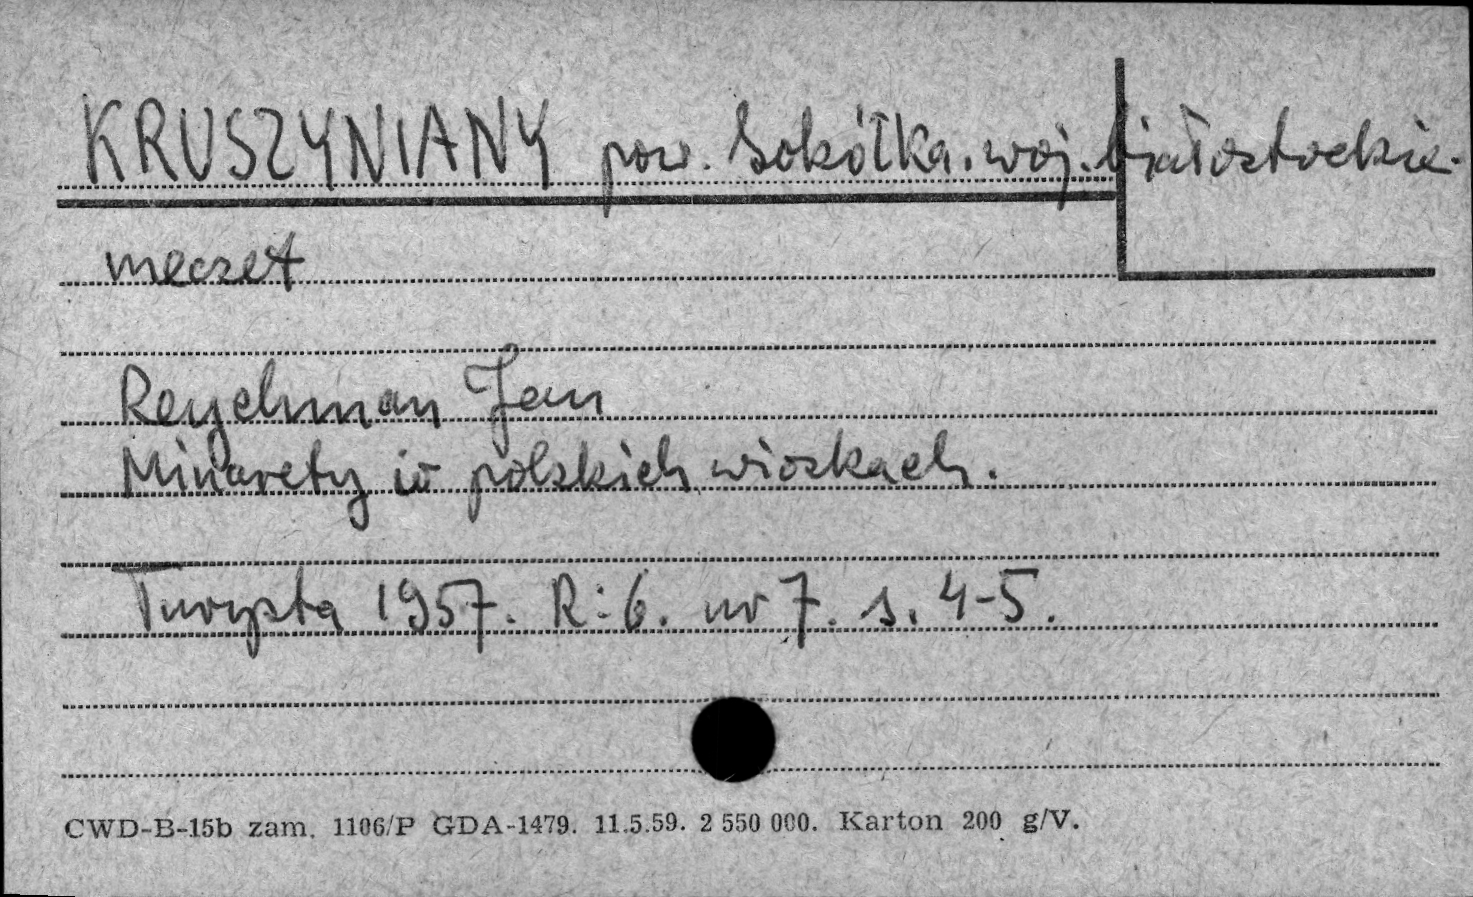 KRUSZYNIANY pow. Sokółka. woj. białostockie.
meczet
Reychman Jan
Minarety w polskich wioskach.
Turysta 1957. R:6. nr 7. s. 4-5.
CWD-B-15b zam. 1106/P GDA-1479. 11.5.59. 2 550 000. Karton 200 g/V.